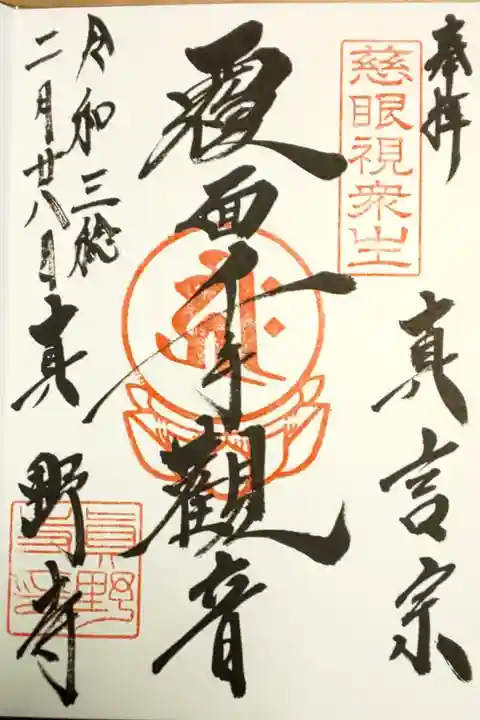 奉拝
慈眼視衆生
真言宗
覆面千手観音
令和三稔
二月廿八日
真野寺
真野寺印